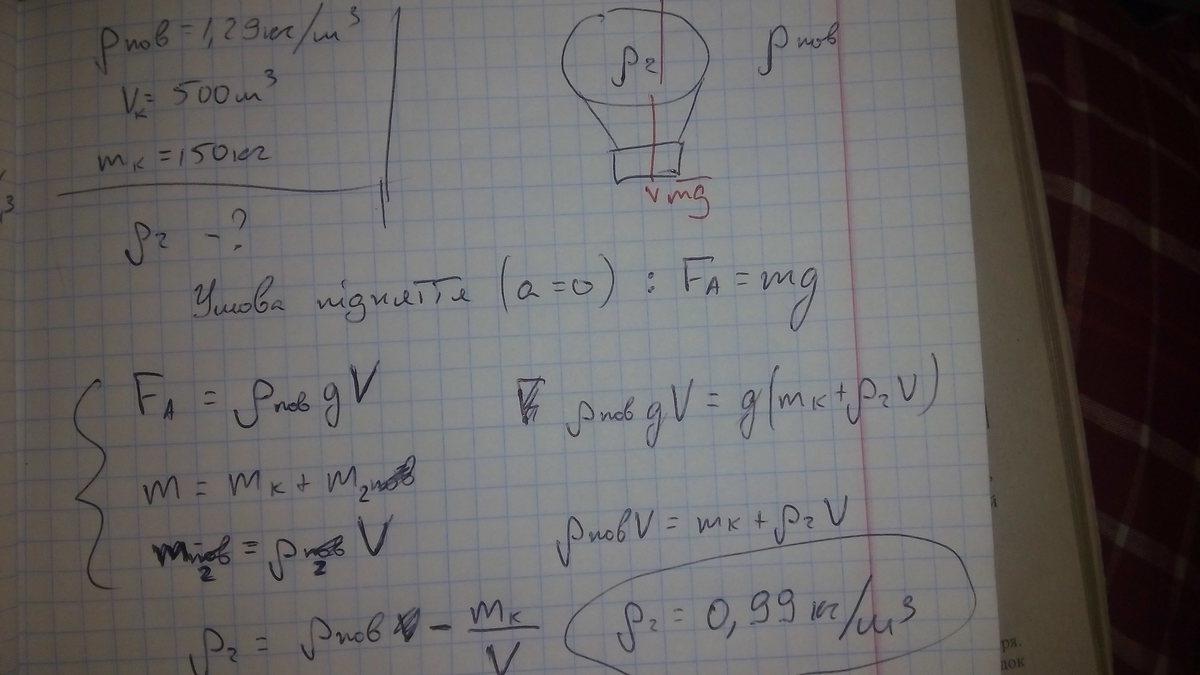 ρпов = 1,29 кг/м³
Vк = 500 м³
mк = 150 кг
ρг - ?
ρг
ρпов
mg
Умова підняття (a = 0) : FA = mg
FA = ρпов gV
ρпов gV = g(mк + ρг V)
m = mк + mг
mг = ρг V
ρпов V = mк + ρг V
ρг = ρпов - mк/V
ρг = 0,99 кг/м³
ря.
док